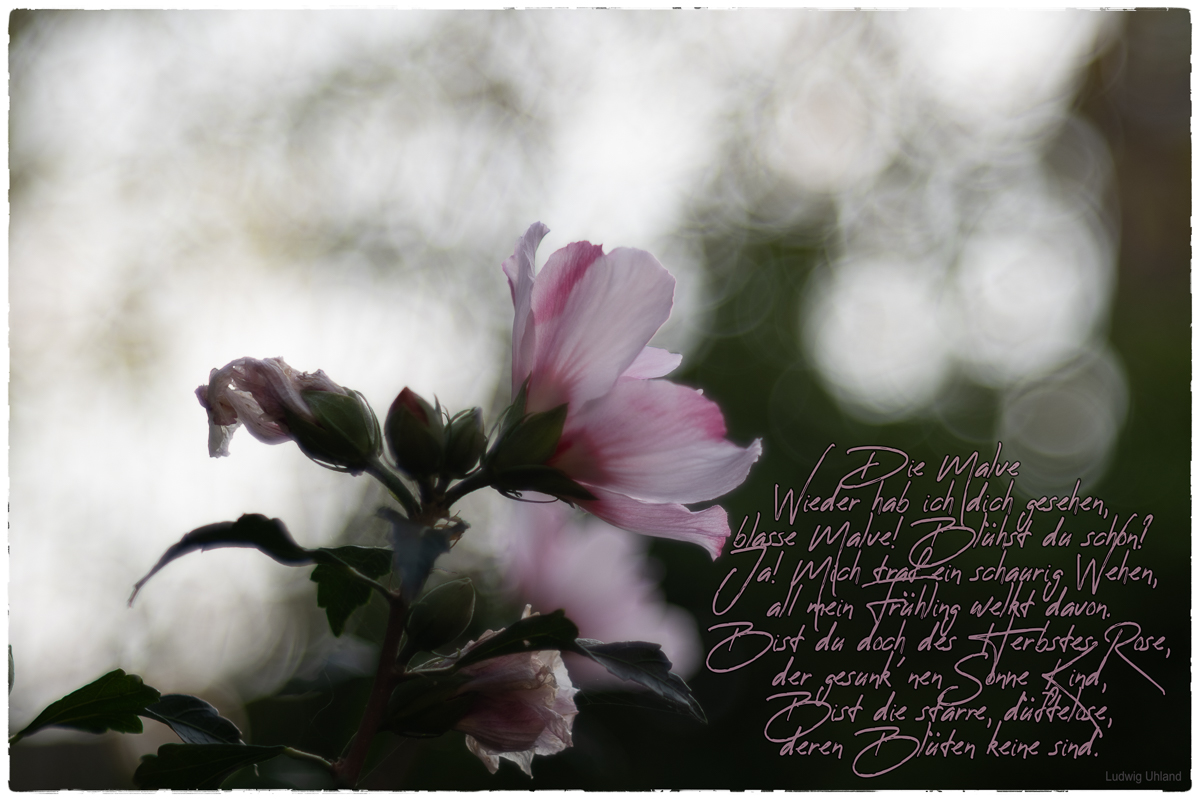 Die Malve
Wieder hab ich dich gesehen,
blasse Malve! Blühst du schon?
Ja! Mich traf ein schaurig Wehen,
all mein Frühling welkt davon.
Bist du doch des Herbstes Rose,
der gesunk'nen Sonne Kind,
Bist die starre, düftelose,
deren Blüten keine sind.
Ludwig Uhland